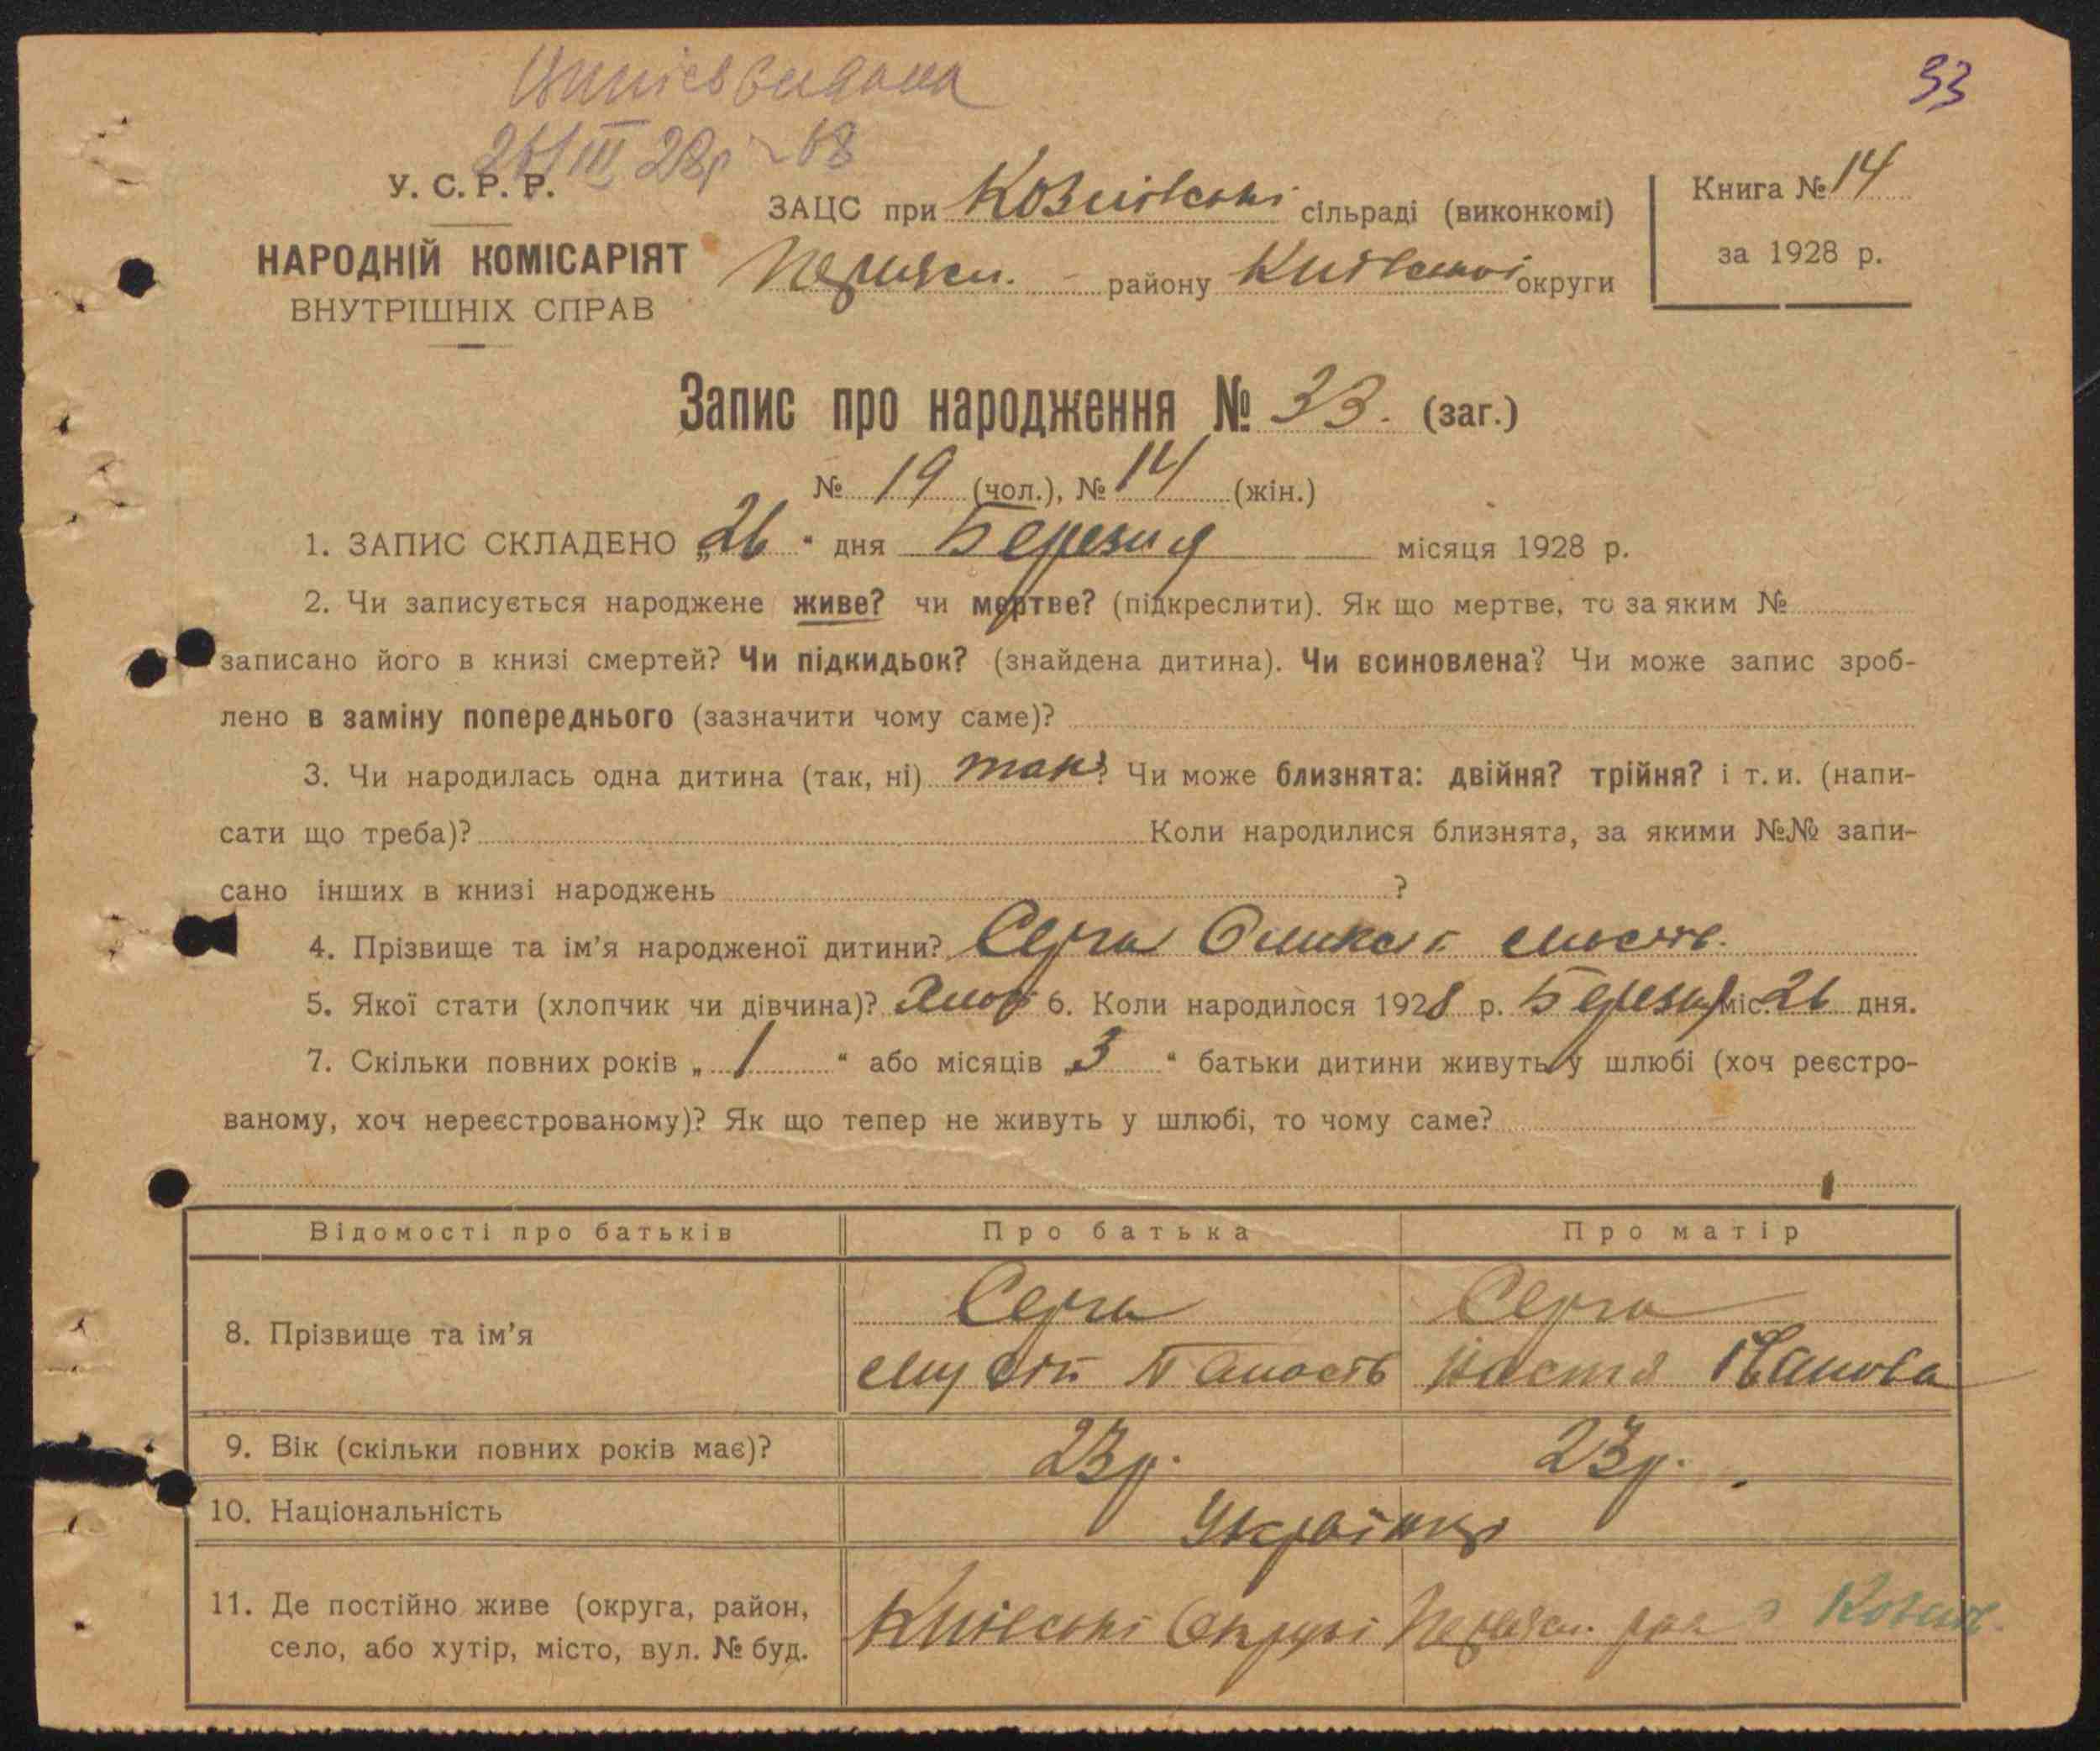 33
Випісь видана
26/III 28р №68
У. С. Р. Р.
НАРОДНІЙ КОМІСАРІЯТ
ВНУТРІШНІХ СПРАВ
ЗАЦС при сільраді (виконкомі)
району Київської округи
Книга № 14
за 1928 р.
Запис про народження № 33. (заг.)
№ 19 (чол.), № 14 (жін.)
1. ЗАПИС СКЛАДЕНО „26“ дня Березня місяця 1928 р.
2. Чи записується народжене живе? чи мертве? (підкреслити). Як що мертве, то за яким №
записано його в книзі смертей? Чи підкидьок? (знайдена дитина). Чи всиновлена? Чи може запис зроб-
лено в заміну попереднього (зазначити чому саме)?
3. Чи народилась одна дитина (так, ні) так? Чи може близнята: двійня? трійня? і т. и. (напи-
сати що треба)? Коли народилися близнята, за якими №№ запи-
сано інших в книзі народжень ?
4. Прізвище та ім'я народженої дитини? Серга
5. Якої стати (хлопчик чи дівчина)? Хлоп 6. Коли народилося 1928 р. Березня міс. 26 дня.
7. Скільки повних років „ 1 “ або місяців „ 3 “ батьки дитини живуть у шлюбі (хоч реєстро-
ваному, хоч нереєстрованому)? Як що тепер не живуть у шлюбі, то чому саме?
Відомості про батьків Про батька Про матір
8. Прізвище та ім'я Серга Серга
Настя Іванова
9. Вік (скільки повних років має)? 23р. 23р.
10. Національність Українці
11. Де постійно живе (округа, район,
село, або хутір, місто, вул. № буд. Київські Округі